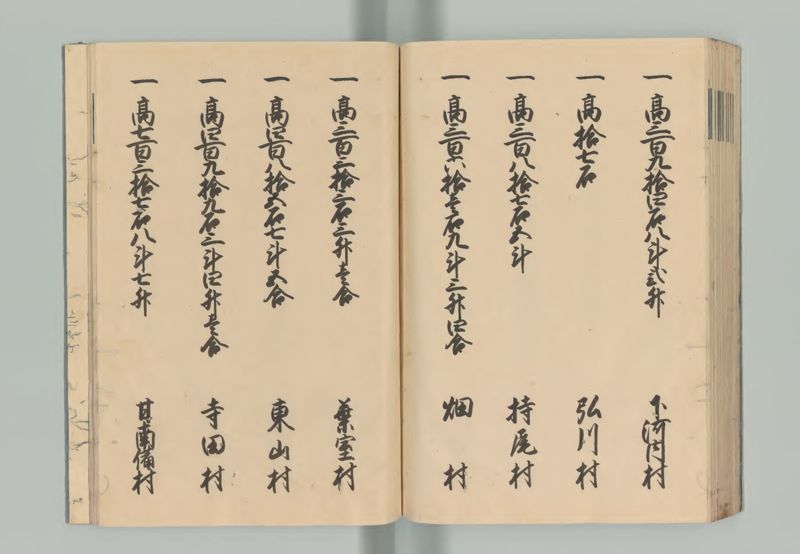 一 高三百九拾四石八斗弐升 下河内村
一 高拾七石 弘川村
一 高三百八拾七石五斗 持尾村
一 高三百六拾壱石九斗三升四合 畑村
一 高三百三拾三石三升壱合 葉室村
一 高四百八拾五石七斗五合 東山村
一 高四百九拾九石三斗四升壱合 寺田村
一 高七百三拾七石八斗七升 甘南備村